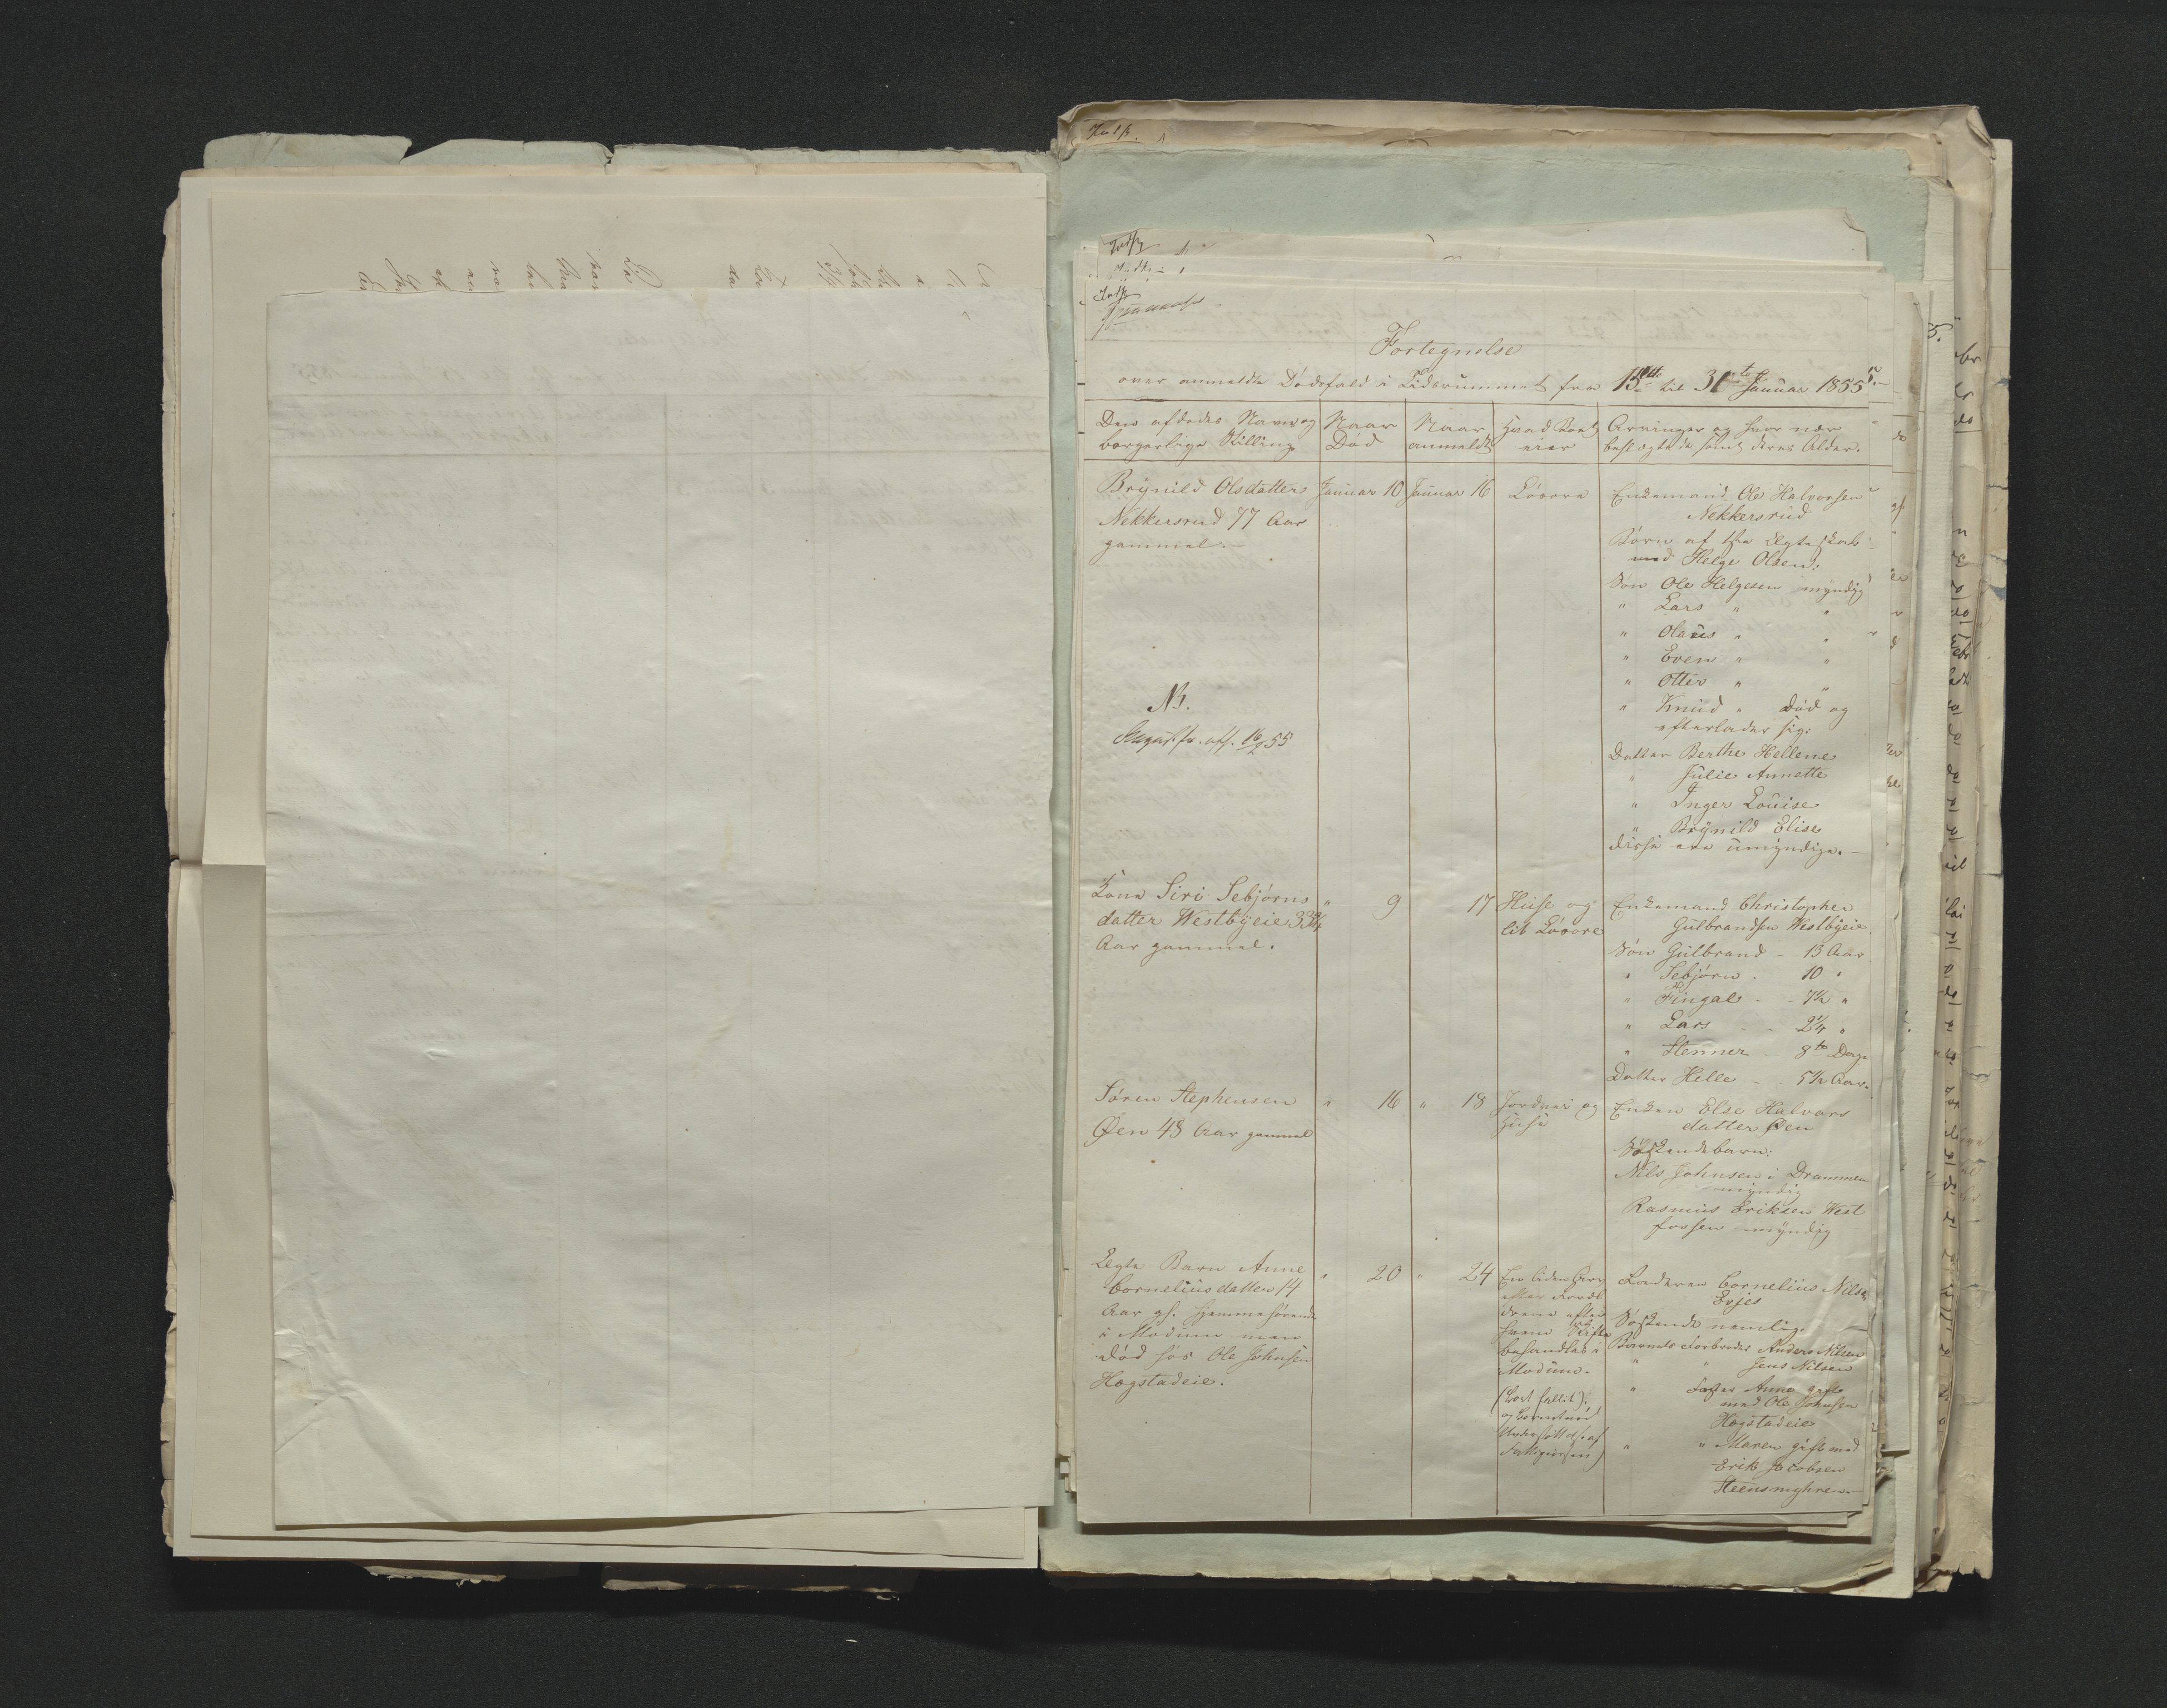 Fortegnelse
over anmeldte Dødsfald i Tidsrummet fra 15de til 31te Januar 1855.
Den afdødes Navn og borgerlige Stilling
Naar Død
Naar anmeldt
Hvad Boet eier
Arvinger og hvor nær beslægtede samt deres Alder.
Brÿnild Olsdatter
Nekkersrud 77 Aar
gammel.
Januar 10
Januar 16
Løsøre
Enkemand Ole Halvorsen
Nekkersrud
Børn af 1ste Ægteskab
med Helge Olsen:
Søn Ole Helgesen myndig
" Lars " "
" Olaüs " "
" Even " "
" Otter " "
" Knüd " død og
efterlader sig:
Datter Berthe Hellene
" Jülie Annette
" Inger Louise
" Brÿnild Elise
disse ere umyndige.
NB.
Kone Siri Sebjørns
datter Westbÿeie 33 3/4
Aar gammel.
" 9
17
Huse og
lit Løsøre
Enkemand Christopher
Gulbrandsen Westbÿeie
Søn Gulbrand - 13 Aar
" Sebjørn - 10 "
" Fingal - 7 1/2 "
" Lars - 2 1/4 "
" Stenner - 8te Dage
Datter Helle - 5 1/2 Aar.
Søren Stephensen
Øen 48 Aar gammel
" 16
" 18
Jordvei og
Huse
Enken Else Halvors
datter Øen
Søskendebarn:
Nils Johnsen i Drammen
myndig
Rasmus Eriksen West
fossen myndig
Ægte Barn Anne
Corneliusdatter 14
Aar gl. hjemmehørende
i Modum men
død hos Ole Johnsen
Hogstadeie.
" 20
" 24
En liden Arv
efter Foræl
drene efter
hvem Skifte
behandles i
Modum.
Faderen Cornelius Nilsen
Evje
Søskende nemlig:
Barnets Farbroder Anders Nilsen
" " Jens Nilsen
" Faster Anne gift
med Ole Johnsen
Hogstadeie
" " Maren gift med
Erik Jacobsen
Steensmyhren.